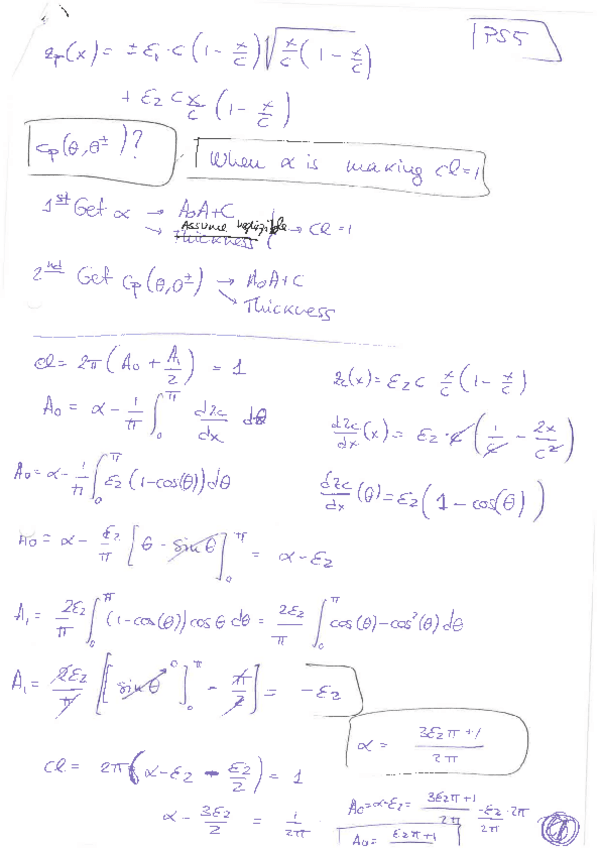 PS5
z_p(x) = ± ε₁ · c (1 - x/c) √(x/c (1 - x/c))
+ ε₂ c x/c (1 - x/c)
c_p(θ, θ^±)?
When α is making cl=1
1st Get α → AoA+C
→ Thickness Assume negligible → Cl = 1
2nd Get Cp(θ,0^±) → AoA+C
→ Thickness
cl = 2π (A₀ + A₁/2) = 1
z_c(x) = ε₂ c x/c (1 - x/c)
A₀ = α - 1/π ∫₀^π dz_c/dx dθ
dz_c/dx (x) = ε₂ · c (1/c - 2x/c²)
A₀ = α - 1/π ∫₀^π ε₂ (1-cos(θ)) dθ
dz_c/dx (θ) = ε₂ (1 - cos(θ))
A₀ = α - ε₂/π [θ - sinθ]₀^π = α - ε₂
A₁ = 2ε₂/π ∫₀^π (1-cos(θ)) cosθ dθ = 2ε₂/π ∫₀^π cos(θ) - cos²(θ) dθ
A₁ = 2ε₂/π [[sinθ]₀^π 0 - π/2] = -ε₂
α = 3ε₂π+1 / 2π
Cl = 2π (α - ε₂ - ε₂/2) = 1
α - 3ε₂/2 = 1/2π
A₀ = α-ε₂ = 3ε₂π+1 / 2π - ε₂·2π / 2π
A₀ = ε₂π+1